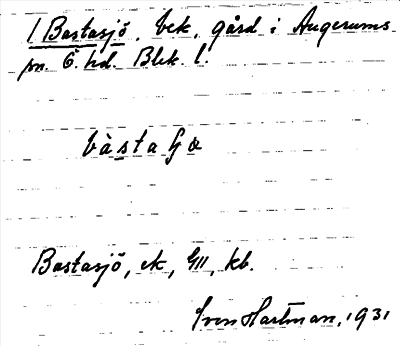 / Bastasjö, bek. gård i Augerums
sn. Ö. hd. Blek. l.
Bastasjö, ek, GIII, kb.
Sven Hartman, 1931